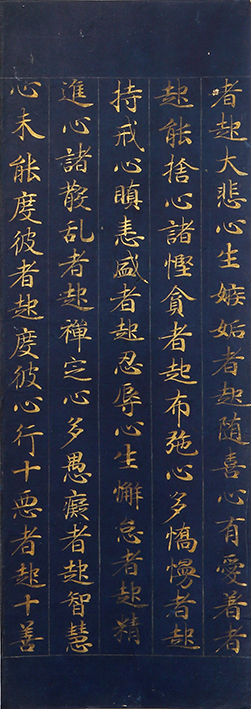 者起大悲心生嫉妬者起随喜心有愛着者
起能捨心諸慳貪者起布施心多憍慢者起
持戒心瞋恚盛者起忍辱心生懈怠者起精
進心諸散乱者起禅定心多愚癡者起智慧
心未能度彼者起度彼心行十悪者起十善